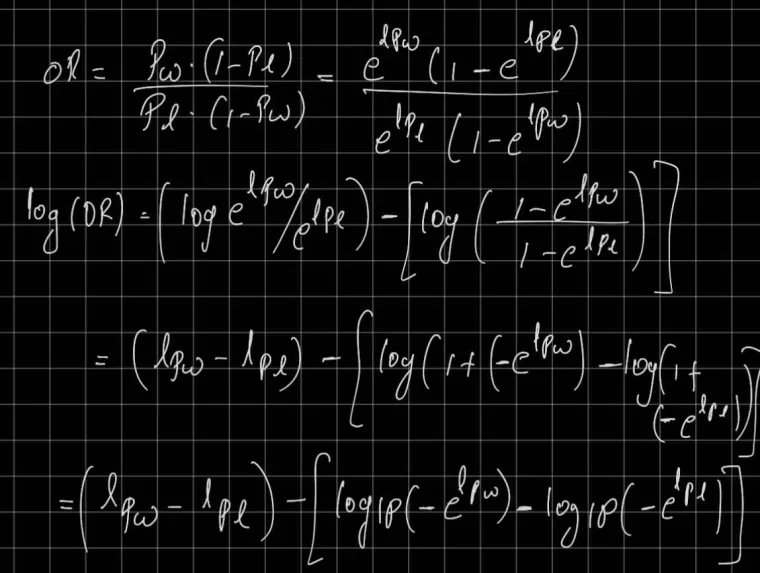 OR = Pw·(1-Pl) / Pl·(1-Pw) = e^lPw (1-e^lPl) / e^lPl (1-e^lPw)
log(OR) = (log e^lPw/e^lPl) - [log (1-e^lPw / 1-e^lPl)]
= (lPw - lPl) - [log(1+(-e^lPw) - log(1+(-e^lPl))]
= (lPw - lPl) - [log1P(-e^lPw) - log1P(-e^lPl)]